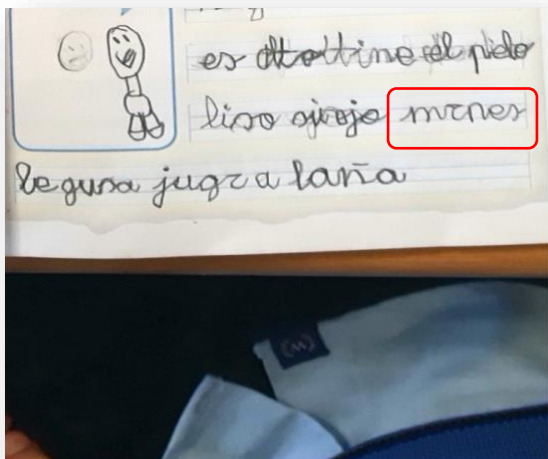 es altoltine el pielo
liso ojiroje mrnes
le gusa jugr a laña
(m)